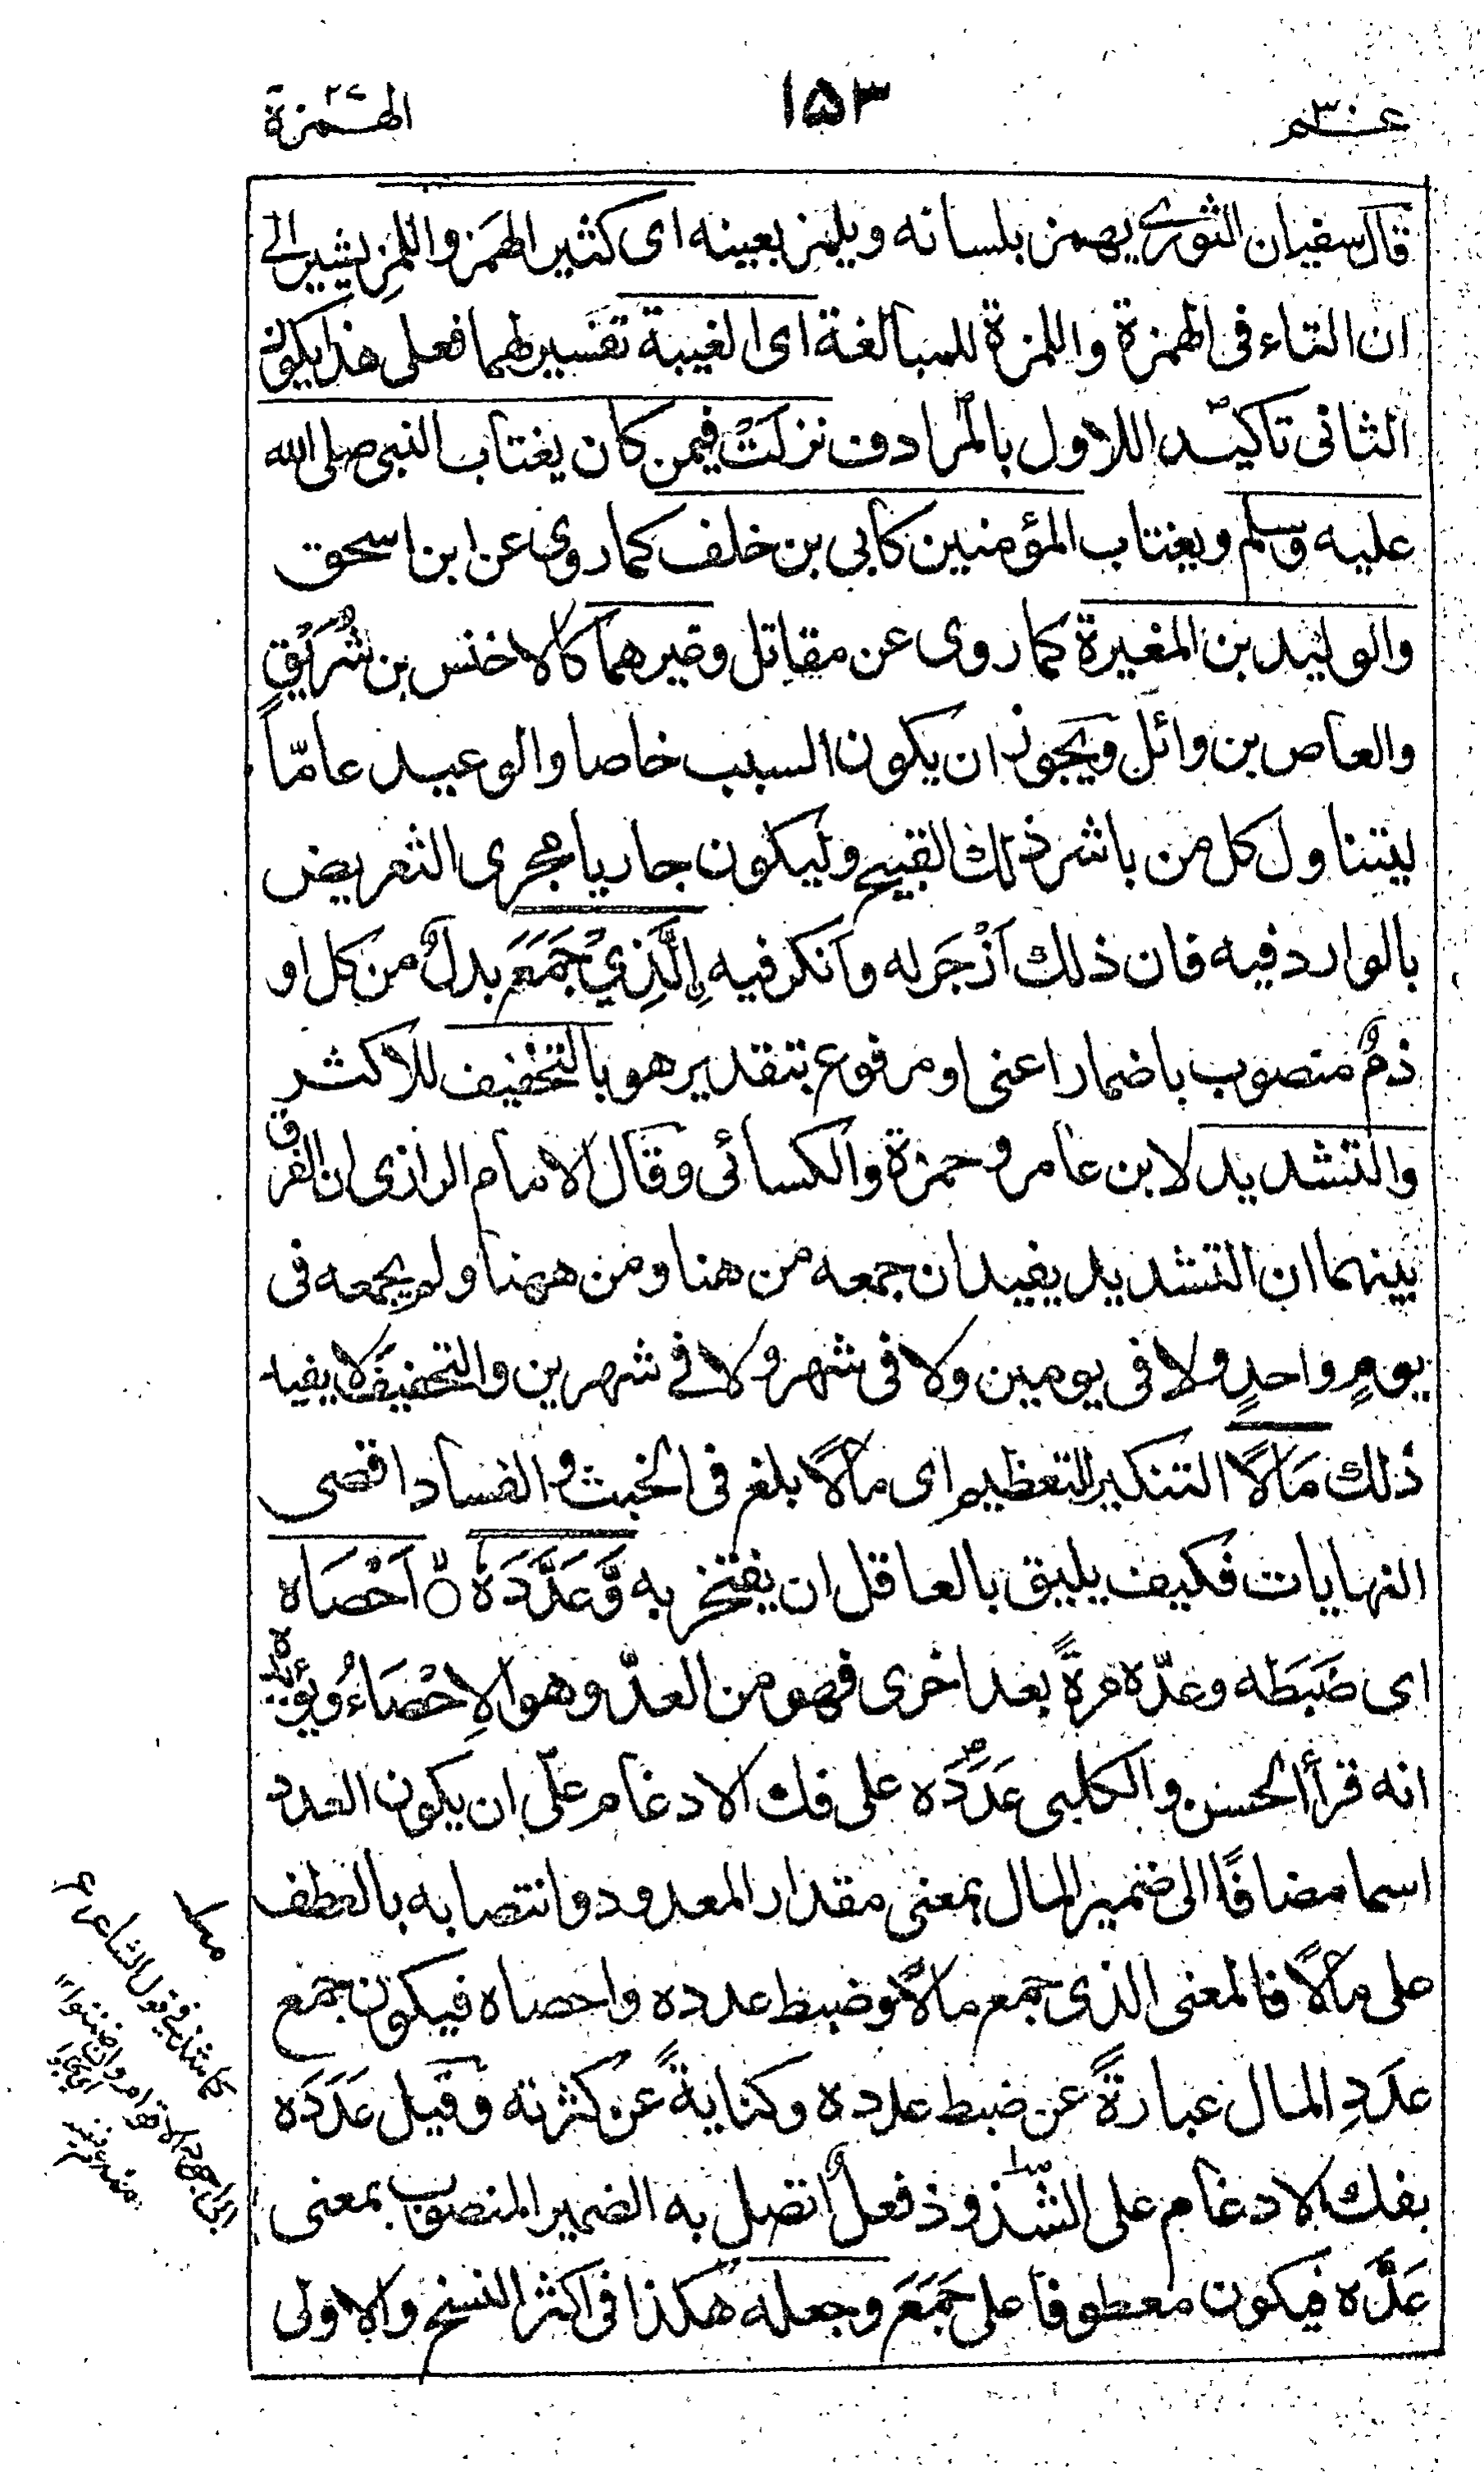 عم ٣٠
١٥٣
الهمزة
قال سفيان الثوري يهمز بلسانه ويلمز بعينه اى كثير الهمز واللمز يشير الى
ان التاء فى الهمزة واللمزة للمبالغة اى الغيبة تفسير لهما فعلى هذا يكون
الثانى تاكيد اللاول بالمرادف نزلت فيمن كان يغتاب النبى صلى الله
عليه وسلم ويغتاب المؤمنين كابى بن خلف كما روى عن ابن اسحق
والوليد بن المغيرة كما روى عن مقاتل وغيرهما كالاخنس بن شُرَيْقٍ
والعاص بن وائل ويجوز ان يكون السبب خاصا والوعيد عامّاً
ليتناول كل من باشر ذلك القبيح وليكون جاريا مجرى التعريض
بالوارد فيه فان ذلك اَزْجَر له وانكر فيه اِلَّذِيْ جَمَعَ بدلٌ من كل او
ذمٌّ منصوب باضمار اعنى او مرفوع بتقدير هو بالتخفيف للاكثر
والتشديد لابن عامر وحمزة والكسائى وقال الامام الرازى ان الفرق
بينهما ان التشديد يفيد ان جمعه من هنا ومن ههنا ولم يجمعه فى
يومٍ واحدٍ ولا فى يومين ولا فى شهر ولا فے شهرين والتخفيف لا يفيد
ذلك مَالًا التنكير للتعظيم اى مالًا بلغ فى الخبث والفساد اقصى
النهايات فكيف يليق بالعاقل ان يفتخر به وَّعَدَّدَهٗ ۙ اَحْصَاه
اى ضَبَطَه وعدّه مرةً بعد اخرى فهو من العدّ وهو الاِحْصَاءُ ويؤيده
انه قرأ الحسن والكلبى عَدَدَه على فك الادغام على ان يكون العدد
اسما مضافًا الى ضمير المال بمعنى مقدار المعدود وانتصابه بالعطف
على مالًا فالمعنى الذى جمع مالًا وضبط عدده واحصاه فيكون جمع
عدَدِ المال عبارةً عن ضبط عدده وكنايةً عن كثرته وقيل عَدَدَه
بفك الادغام على الشذوذ فعلٌ اتصل به الضمير المنصوب بمعنى
عَدَّه فيكون معطوفا على جَمَعَ وجعله هكذا فى اكثر النسخ والاولى
كما شذ فى قول الشاعر